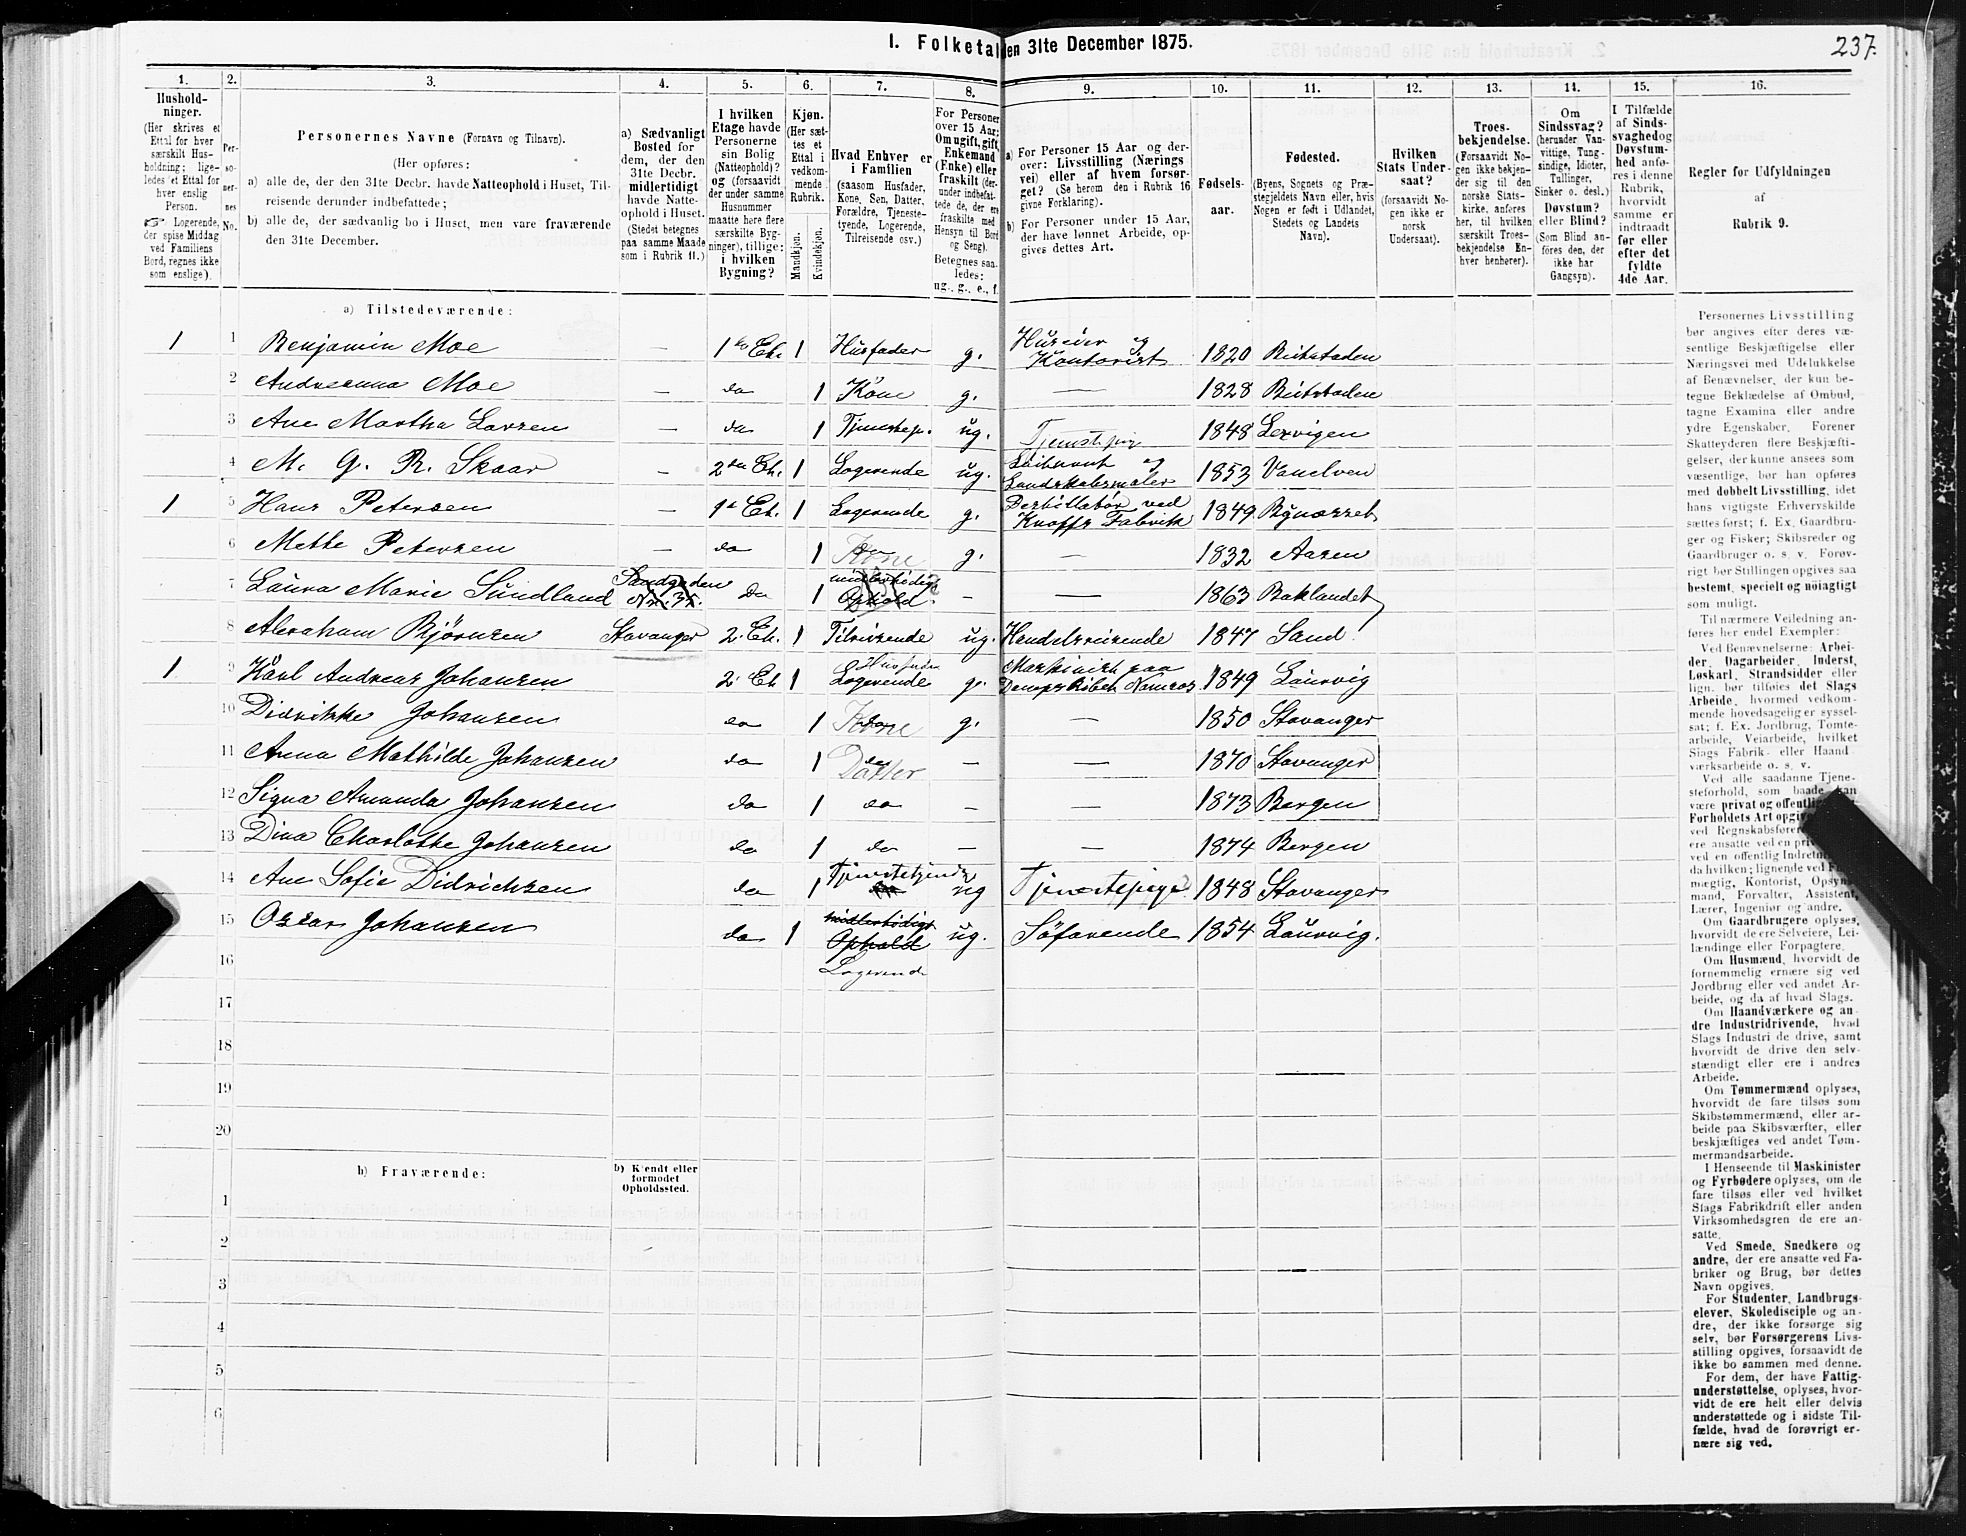 I. Folketal den 31te December 1875.
237.
1.
Hushold-
ninger.
(Her skrives et
Ettal for hver
særskilt Hus-
holdning; lige-
ledes et Ettal for
hver enslig
Person.
☞ Logerende,
der spise Middag
ved Familiens
Bord, regnes ikke
som enslige).
2.
Per-
so-
ner-
nes
No.
3.
Personernes Navne (Fornavn og Tilnavn).
(Her opføres:
a) alle de, der den 31te Decbr. havde Natteophold i Huset, Til-
reisende derunder indbefattede;
b) alle de, der sædvanlig bo i Huset, men vare fraværende
den 31te December.
4.
a) Sædvanligt
Bosted for
dem, der den
31te Decbr.
midlertidigt
havde Natte-
ophold i Huset.
(Stedet betegnes
paa samme Maade
som i Rubrik 11.)
5.
I hvilken
Etage havde
Personerne
sin Bolig
(Natteophold)?
og (forsaavidt
der under samme
Husnummer
maatte høre flere
særskilte Byg-
ninger), tillige:
i hvilken
Bygning?
6.
Kjøn.
(Her sæt-
tes et
Ettal i
vedkom-
mende
Rubrik.
Mandkjøn.
Kvindekjøn.
7.
Hvad Enhver er
i Familien
(saasom Husfader,
Kone, Søn, Datter,
Forældre, Tjeneste-
tyende, Logerende,
Tilreisende osv.)
8.
For Personer
over 15 Aar:
Om ugift, gift,
Enkemand
(Enke) eller
fraskilt (der-
under indbefat-
tede de, der ere
fraskilte med
Hensyn til Bord
og Seng).
Betegnes saa-
ledes:
ug., g., e., f.
9.
a) For Personer 15 Aar og der-
over: Livsstilling (Nærings
vei) eller af hvem forsør-
get? (Se herom den i Rubrik 16
givne Forklaring).
b) For Personer under 15 Aar,
der have lønnet Arbeide, op-
gives dettes Art.
10.
Fødsels-
aar.
11.
Fødested.
(Byens, Sognets og Præ-
stegjeldets Navn eller, hvis
Nogen er født i Udlandet,
Stedets og Landets
Navn).
12.
Hvilken
Stats Under-
saat?
(forsaavidt No-
gen ikke er
norsk
Undersaat).
13.
Troes-
bekjendelse.
(Forsaavidt No-
gen ikke bekjen-
der sig til den
norske Stats-
kirke, anføres
her, til hvilken
særskilt Troes-
bekjendelse En-
hver henhører).
14.
Om
Sindssvag?
(herunder Van-
vittige, Tung-
sindige, Idioter,
Tullinger,
Sinker o. desl.)
Døvstum?
eller Blind?
(Som Blind an-
føres den, der
ikke har
Gangsyn).
15.
I Tilfælde
af Sinds-
svaghed og
Døvstum-
hed anfø-
res i denne
Rubrik,
hvorvidt
samme er
indtraadt
før eller
efter det
fyldte
4de Aar.
16.
Regler for Udfyldningen
af
Rubrik 9.
a) Tilstedeværende:
1 1 Benjamin Moe — 1ste Et. 1 Husfader g. Huseier og Kontorist 1820 Beitstaden
2 Andreanna Moe — do 1 Kone g. — 1828 Beitstaden
3 Ane Martha Larsen — do 1 Tjenestep. ug. Tjenestepige 1848 Lexvigen
4 M. G. R. Skaar — 2den Et. 1 Logerende ug. Løitnant og Landskabsmaler 1853 Vanelven
1 5 Hans Petersen — 1ste Et. 1 Logerende g. Destillatør ved Knoffs Fabrik 1849 Bynæsset
6 Mette Petersen — do 1 do Kone g. — 1832 Aasen
7 Laura Marie Sundland Sandgaden No. 35. do 1 midlertidigt Ophold. — — 1863 Baklandet
8 Abraham Bjørnsen Stavanger 2. Et. 1 Tilreisende ug. Handelsreisende 1847 Sand
1 9 Karl Andreas Johansen 2. Et 1 Husfader Logerende g. Maskinist paa Dampskibet Namsos 1849 Laurvig
10 Didrikke Johansen do 1 do Kone g. — 1850 Stavanger
11 Anna Mathilde Johansen do 1 do Datter — — 1870 Stavanger
12 Signa Amanda Johansen do 1 do — — 1873 Bergen
13 Dina Charlotte Johansen do 1 do — — 1874 Bergen
14 Ane Sofie Didrichsen do 1 Tjenestetyende ug Tjenestepige 1848 Stavanger
15 Oscar Johansen do 1 midlertidigt Ophold Logerende ug. Søfarende 1854 Laurvig.
16
17
18
19
20
b) Fraværende:
b) Kjendt eller
formodet
Opholdssted.
1
2
3
4
5
6
Personernes Livsstilling
bør angives efter deres væ-
sentlige Beskjæftigelse eller
Næringsvei med Udelukkelse
af Benævnelser, der kun be-
tegne Beklædelse af Ombud,
tagne Examina eller andre
ydre Egenskaber. Forener
Skatteyderen flere Beskjæfti-
gelser, der kunne ansees som
væsentlige, bør han opføres
med dobbelt Livsstilling, idet
hans vigtigste Erhvervskilde
sættes først; f. Ex. Gaardbru-
ger og Fisker; Skibsreder og
Gaardbruger o. s. v. Forøv-
rigt bør Stillingen opgives saa
bestemt, specielt og nøiagtigt
som muligt.
Til nærmere Veiledning an-
føres her endel Exempler:
Ved Benævnelserne: Arbei-
der, Dagarbeider, Inderst,
Løskarl, Strandsidder eller
lign. bør tilføies det Slags
Arbeide, hvormed vedkom-
mende hovedsagelig er syssel-
sat; f. Ex. Jordbrug, Tomte-
arbeide, Veiarbeide, hvilket
Slags Fabrik- eller Haand-
værksarbeide o. s. v.
Ved alle saadanne Tjene-
steforhold, som baade kan
være privat og offentlig,
Forholdets Art opgives
ved Regnskabsfører
ere ansatte ved en
ved en offentlig Indretning
da hvilken; lignende ved
mægtig, Kontorist, Opsyns-
mand, Forvalter, Assistent,
Lærer, Ingeniør og andre.
Om Gaardbrugere oplyses,
hvorvidt de ere Selveiere, Lei-
lændinge eller Forpagtere.
Om Husmænd, hvorvidt de
fornemmelig ernære sig ved
Jordbrug eller ved andet Ar-
beide, og da af hvad Slags.
Om Haandværkere og an-
dre Industridrivende, hvad
Slags Industri de drive, samt
hvorvidt de drive den selv-
stændigt eller ere i andres
Arbeide.
Om Tømmermænd oplyses,
hvorvidt de fare tilsøs som
Skibstømmermænd, eller ar-
beide paa Skibsværfter, eller
beskjæftiges ved andet Tøm-
mermandsarbeide.
I Henseende til Maskinister
og Fyrbødere oplyses, om de
fare tilsøs eller ved hvilket
Slags Fabrikdrift eller anden
Virksomhedsgren de ere an-
satte.
Ved Smede, Snedkere og
andre, der ere ansatte ved Fa-
briker og Brug, bør dettes
Navn opgives.
For Studenter, Landbrugs-
elever, Skoledisciple og an-
dre, der ikke forsørge sig
selv, bør Forsørgerens Livs-
stilling opgives, forsaavidt de
ikke bo sammen med denne.
For dem, der have Fattig-
understøttelse, oplyses, hvor-
vidt de ere helt eller delvis
understøttede og i sidste Til-
fælde, hvad de forøvrigt er-
nære sig ved.